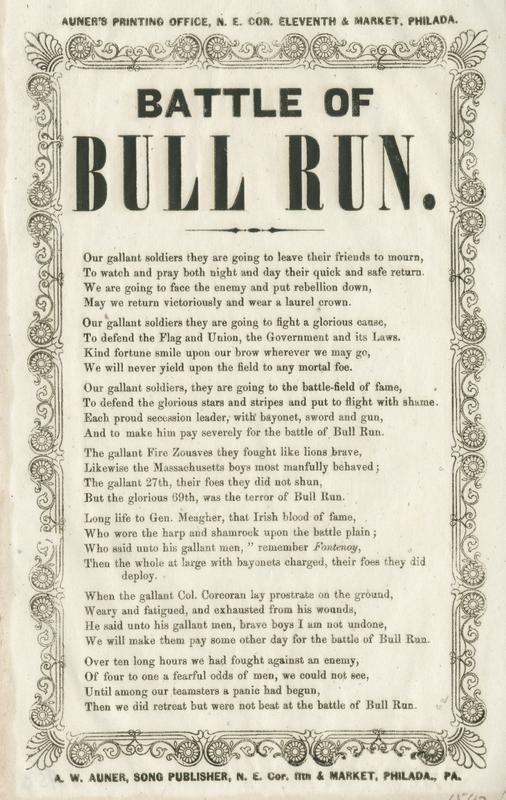 AUNER'S PRINTING OFFICE, N. E. COR. ELEVENTH & MARKET, PHILADA.
BATTLE OF
BULL RUN.
Our gallant soldiers they are going to leave their friends to mourn,
To watch and pray both night and day their quick and safe return.
We are going to face the enemy and put rebellion down,
May we return victoriously and wear a laurel crown.
Our gallant soldiers they are going to fight a glorious cause,
To defend the Flag and Union, the Government and its Laws.
Kind fortune smile upon our brow wherever we may go,
We will never yield upon the field to any mortal foe.
Our gallant soldiers, they are going to the battle-field of fame,
To defend the glorious stars and stripes and put to flight with shame.
Each proud secession leader, with bayonet, sword and gun,
And to make him pay severely for the battle of Bull Run.
The gallant Fire Zouaves they fought like lions brave,
Likewise the Massachusetts boys most manfully behaved;
The gallant 27th, their foes they did not shun,
But the glorious 69th, was the terror of Bull Run.
Long life to Gen. Meagher, that Irish blood of fame,
Who wore the harp and shamrock upon the battle plain;
Who said unto his gallant men, " remember Fontenoy,
Then the whole at large with bayonets charged, their foes they did
deploy.
When the gallant Col. Corcoran lay prostrate on the ground,
Weary and fatigued, and exhausted from his wounds,
He said unto his gallant men, brave boys I am not undone,
We will make them pay some other day for the battle of Bull Run.
Over ten long hours we had fought against an enemy,
Of four to one a fearful odds of men, we could not see,
Until among our teamsters a panic had begun,
Then we did retreat but were not beat at the battle of Bull Run.
A. W. AUNER, SONG PUBLISHER, N. E. Cor. 11th & MARKET, PHILADA., PA.